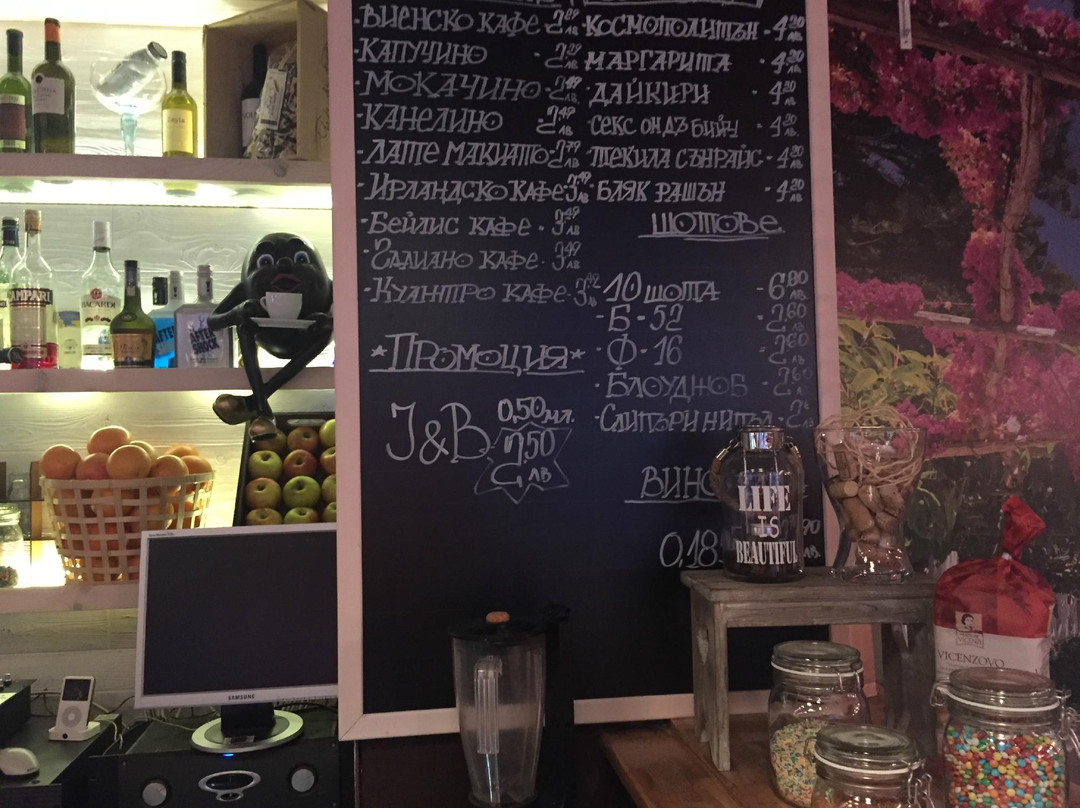 ВИЕНСКО КАФЕ
КАПУЧИНО
МОКАЧИНО
КАНЕЛИНО
ЛАТЕ МАКИАТО
ИРЛАНДСКО КАФЕ
БЕЙЛИС КАФЕ - 3 49 лв
ГАЛИАНО КАФЕ - 3 49 лв
КУАНТРО КАФЕ
*ПРОМОЦИЯ*
J&B 0,50 мл.
2,50 лв
КОСМОПОЛИТЪН - 4 20 лв
МАРГАРИТА - 4 20 лв
ДАЙКИРИ - 4 20 лв
СЕКС ОН ДЪ БИЙЧ - 4 20 лв
ТЕКИЛА СЪНРАЙС - 4 20 лв
БЛЯК РАШЪН - 4 20 лв
ШОТОВЕ
10 ШОТА - 6 80 лв
- Б - 52 - 2 60 лв
- Ф - 16 - 2 60 лв
- БЛОУДЖОБ - 2 60 лв
СЛИПЪРИ НИПЪЛ
ВИНО
0,18
LIFE
IS
BEAUTIFUL
VICENZOVO
SAMSUNG
CAMPARI
BACARDI
AFTER
SHOCK